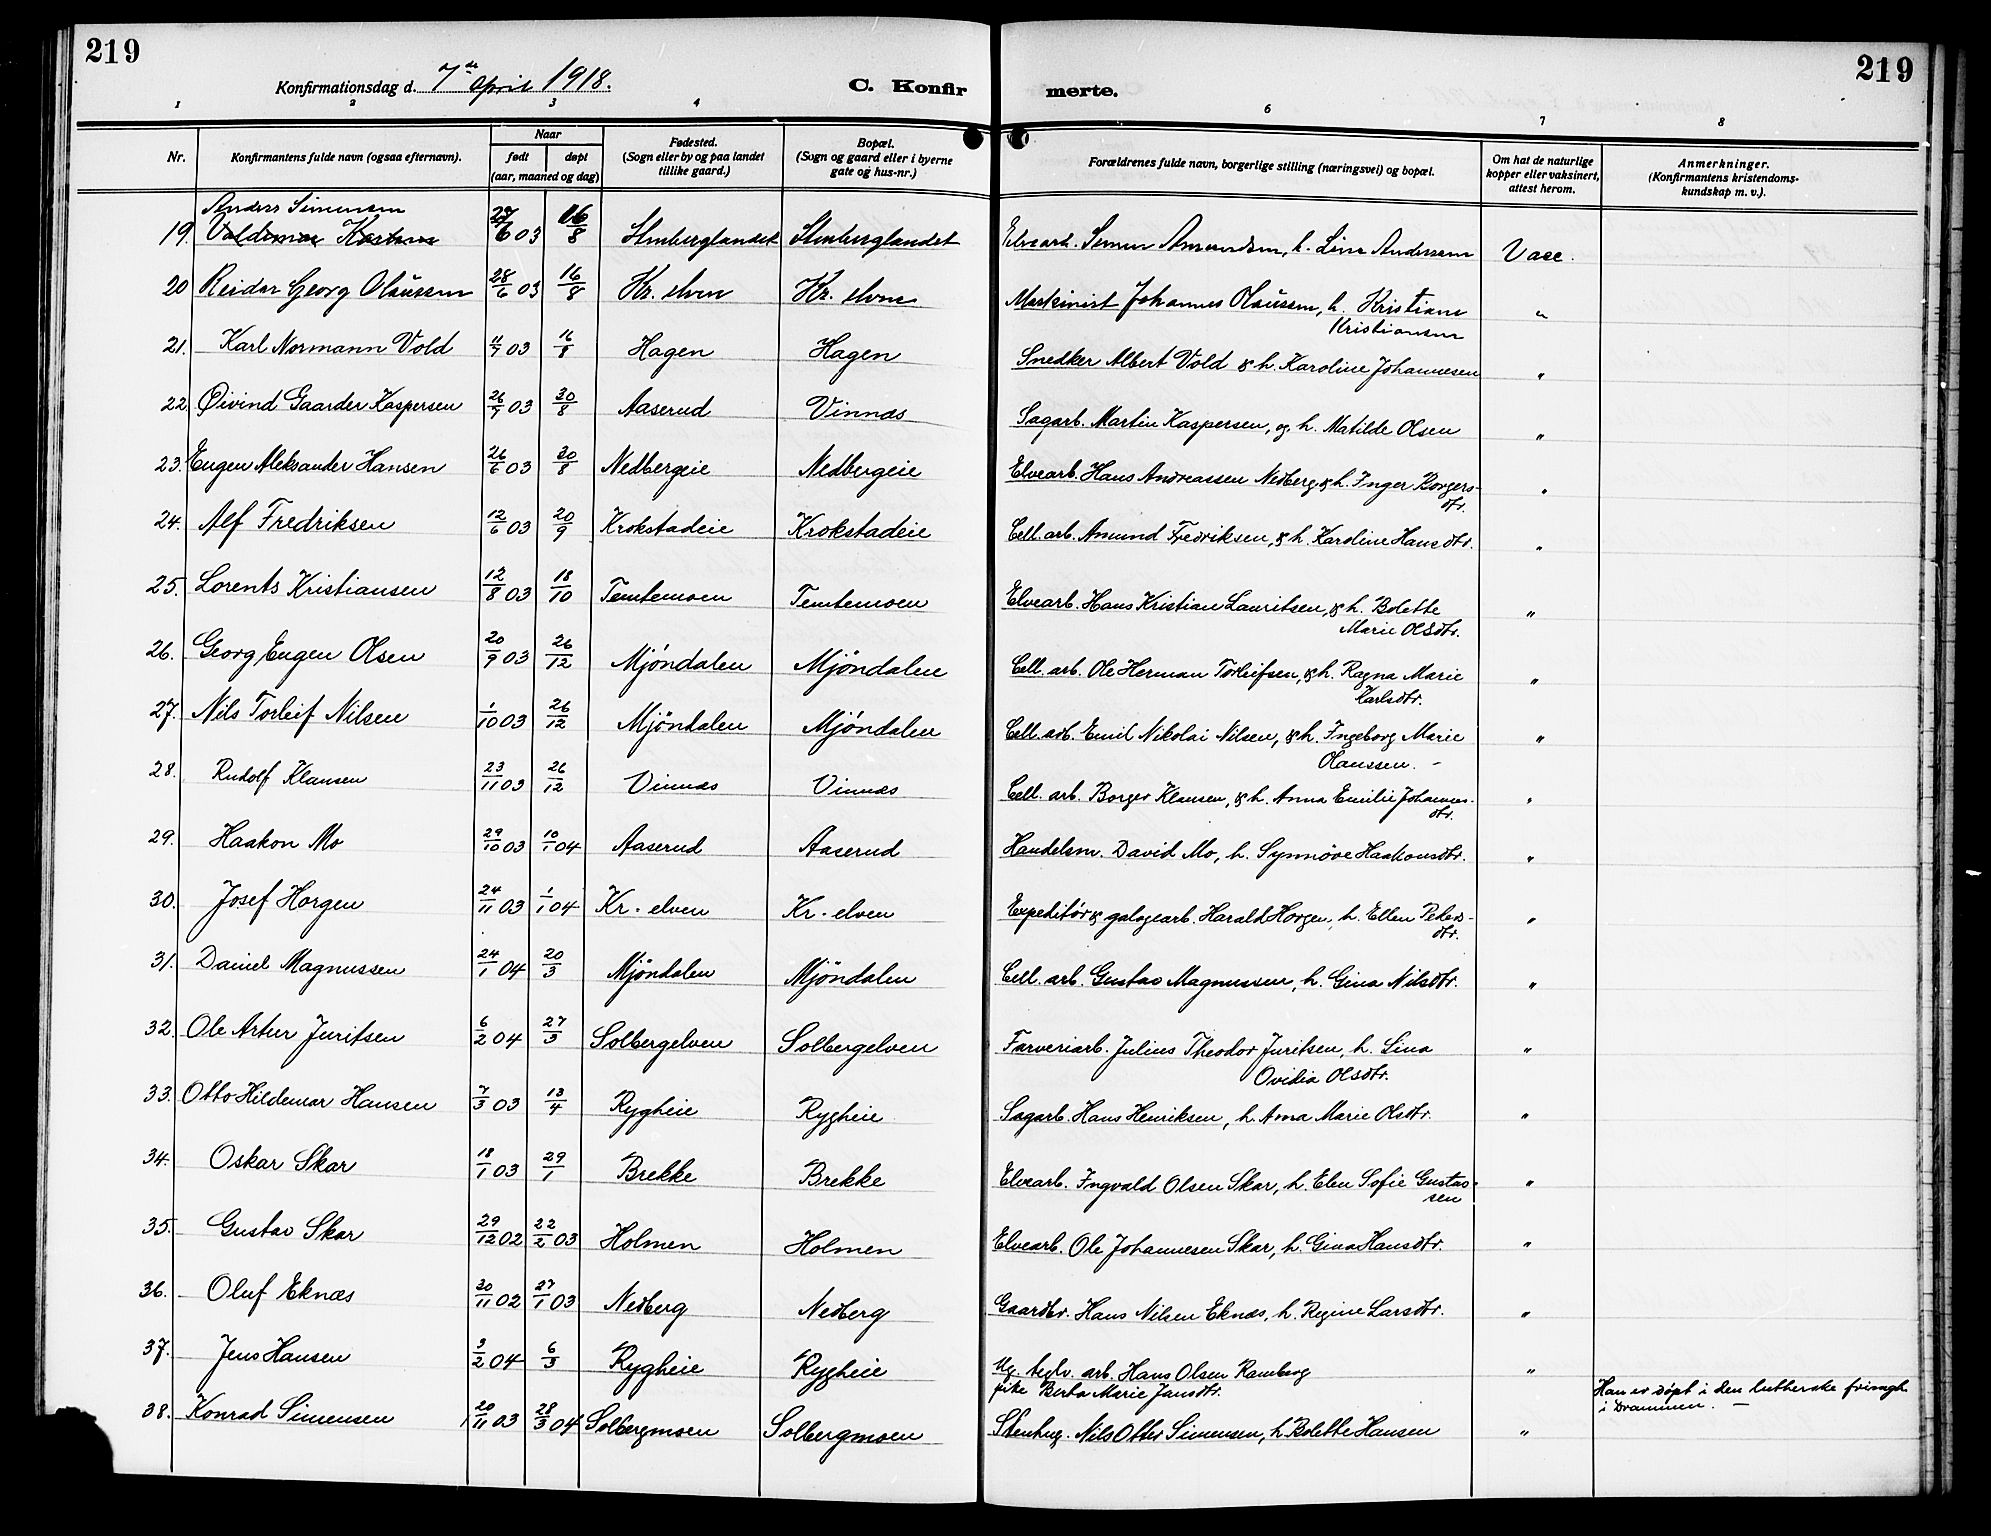 219
219
Konfirmationsdag d. 7de April 1918.
C. Konfirmerte.
1 2 3 4 6 7 8
Nr.
Konfirmantens fulde navn (ogsaa efternavn).
Naar
født døpt
(aar, maaned og dag)
Fødested.
(Sogn eller by og paa landet
tillike gaard.)
Bopæl.
(Sogn og gaard eller i byerne
gate og hus-nr.)
Forældrenes fulde navn, borgerlige stilling (næringsvei) og bopæl.
Om hat de naturlige
kopper eller vaksinert,
attest herom.
Anmerkninger.
(Konfirmantens kristendoms-
kundskap m. v.).
Anders Simensen
19. Valdemar 27/6 03 16/8 Stenberglandet Stenberglandet Elvearb. Simen Amundsen, h. Lina Andersen Vacc.
20 Reidar Georg Olaussen 28/6 03 16/8 Kr. elven Kr. elven Maskinist Johannes Olaussen, h. Kristiane "
Kristiansen
21. Karl Normann Vold 11/7 03 16/8 Hagen Hagen Snedker Albert Vold & h. Karoline Johannesen "
22 Øivind Gaarder Kaspersen 26/7 03 30/8 Aaserud Vinnæs Sagarb. Martin Kaspersen, og h. Matilde Olsen "
23. Eugen Aleksander Hansen 26/6 03 30/8 Nedbergeie Nedbergeie Elvearb. Hans Andreassen Nedberg & h. Inger Borgers- "
dtr.
24. Alf Fredriksen 12/6 03 20/9 Krokstadeie Krokstadeie Cell. arb. Amund Fredriksen, & h. Karoline Hansdtr. "
25. Lorents Kristiansen 12/8 03 18/10 Temtemoen Temtemoen Elvearb. Hans Kristian Lauritsen, & h. Bolette "
Marie Olsdtr.
26. Georg Eugen Olsen 20/9 03 26/12 Mjöndalen Mjöndalen Cell. arb. Ole Herman Torleifsen, & h. Ragna Marie "
Karlsdtr.
27. Nils Torleif Nilsen 1/10 03 26/12 Mjöndalen Mjöndalen Cell. arb. Emil Nikolai Nilsen, & h. Ingeborg Marie "
Olaussen. -
28. Rudolf Klausen 23/11 03 26/12 Vinnæs Vinnæs Cell. arb. Borger Klausen, & h. Anna Emilie Johannes- "
dtr.
29. Haakon Mo 29/10 03 10/1 04 Aaserud Aaserud Handelsm. David Mo, h. Synnöve Haakonsdtr. "
30. Josef Horgen 24/11 03 1/1 04 Kr. elven Kr. elven Expeditör & galogearb. Harald Horgen, h. Ellen Peders- "
dtr.
31. Daniel Magnussen 24/1 04 20/3 Mjöndalen Mjöndalen Cell. arb. Gustav Magnussen, h. Gina Nilsdtr. "
32. Ole Artur Juritsen 6/2 04 27/3 Solbergelven Solbergelven Farveriarb. Julius Theodor Juritsen, h. Lina "
Ovidia Olsdtr.
33. Otto Hildemar Hansen 7/3 03 13/4 Rygheie Rygheie Sagarb. Hans Henriksen, h. Anna Marie Olsdtr. "
34. Oskar Skar 18/1 03 29/1 Brekke Brekke Elvearb. Ingvald Olsen Skar, h. Elen Sofie Gustav- "
sen
35. Gustav Skar 29/12 02 22/2 03 Holmen Holmen Elvearb. Ole Johannesen Skar, h. Gina Hansdtr. "
36. Oluf Eknæs 30/11 02 27/1 03 Nedberg Nedberg Gaardbr. Hans Nilsen Eknæs, h. Regine Larsdtr. "
37. Jens Hansen 3/2 04 6/3 Rygheie Rygheie Ug. teglv. arb. Hans Olsen Ramberg "
pike Berta Marie Jansdtr.
Han er döpt i den lutherske frimgh.
i Drammen. -
38. Konrad Simensen 20/11 03 28/3 04 Solbergmoen Solbergmoen Stenhug. Nils Otter Simensen, h. Bolette Hansen "